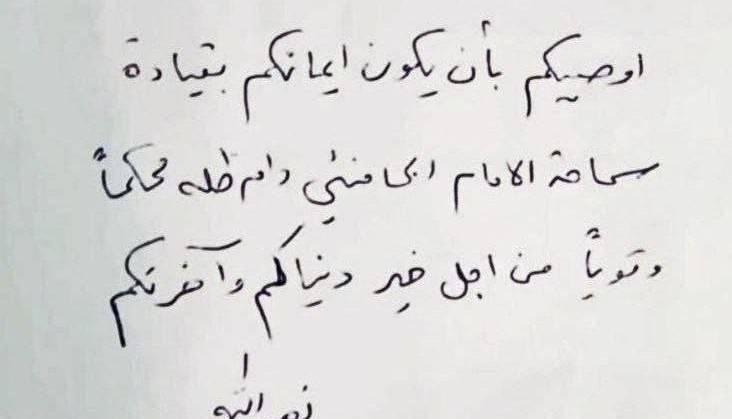 اوصيكم بأن يكون ايمانكم بقيادة
سماحة الامام الخامنئي دام ظله محكماً
وقوياً من اجل خير دنياكم وآخرتكم
الله